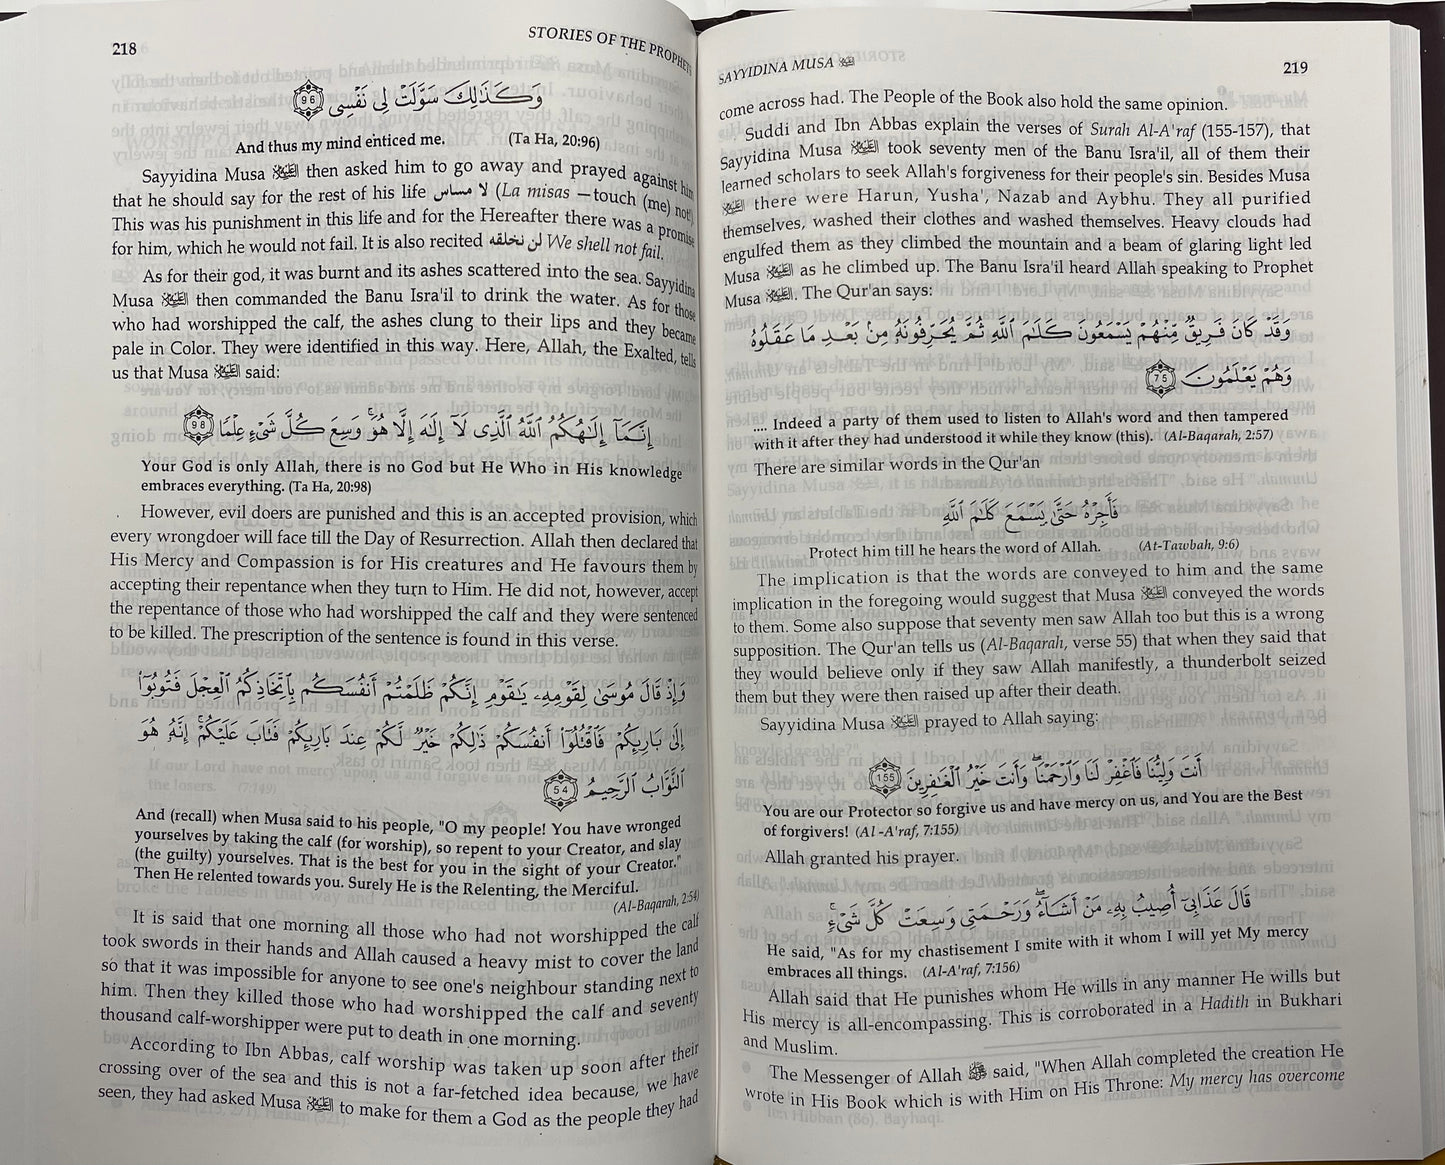 218
STORIES OF THE PROPHETS
وَكَذَٰلِكَ سَوَّلَتْ لِى نَفْسِى ﴿96﴾
And thus my mind enticed me. (Ta Ha, 20:96)
Sayyidina Musa then asked him to go away and prayed against him
that he should say for the rest of his life لا مساس (La misas —touch (me) not!).
This was his punishment in this life and for the Hereafter there was a promise
for him, which he would not fail. It is also recited لن نخلفه We shell not fail.
As for their god, it was burnt and its ashes scattered into the sea. Sayyidina
Musa then commanded the Banu Isra'il to drink the water. As for those
who had worshipped the calf, the ashes clung to their lips and they became
pale in Color. They were identified in this way. Here, Allah, the Exalted, tells
us that Musa said:
إِنَّمَآ إِلَٰهُكُمُ ٱللَّهُ ٱلَّذِى لَآ إِلَٰهَ إِلَّا هُوَ ۚ وَسِعَ كُلَّ شَىْءٍ عِلْمًا ﴿98﴾
Your God is only Allah, there is no God but He Who in His knowledge
embraces everything. (Ta Ha, 20:98)
However, evil doers are punished and this is an accepted provision, which
every wrongdoer will face till the Day of Resurrection. Allah then declared that
His Mercy and Compassion is for His creatures and He favours them by
accepting their repentance when they turn to Him. He did not, however, accept
the repentance of those who had worshipped the calf and they were sentenced
to be killed. The prescription of the sentence is found in this verse.
وَإِذْ قَالَ مُوسَىٰ لِقَوْمِهِۦ يَٰقَوْمِ إِنَّكُمْ ظَلَمْتُمْ أَنفُسَكُم بِٱتِّخَاذِكُمُ ٱلْعِجْلَ فَتُوبُوٓا۟
إِلَىٰ بَارِئِكُمْ فَٱقْتُلُوٓا۟ أَنفُسَكُمْ ذَٰلِكُمْ خَيْرٌ لَّكُمْ عِندَ بَارِئِكُمْ فَتَابَ عَلَيْكُمْ ۚ إِنَّهُۥ هُوَ
ٱلتَّوَّابُ ٱلرَّحِيمُ ﴿54﴾
And (recall) when Musa said to his people, "O my people! You have wronged
yourselves by taking the calf (for worship), so repent to your Creator, and slay
(the guilty) yourselves. That is the best for you in the sight of your Creator."
Then He relented towards you. Surely He is the Relenting, the Merciful.
(Al-Baqarah, 2:54)
It is said that one morning all those who had not worshipped the calf
took swords in their hands and Allah caused a heavy mist to cover the land
so that it was impossible for anyone to see one's neighbour standing next to
him. Then they killed those who had worshipped the calf and seventy
thousand calf-worshipper were put to death in one morning.
According to Ibn Abbas, calf worship was taken up soon after their
crossing over of the sea and this is not a far-fetched idea because, we have
seen, they had asked Musa to make for them a God as the people they had
SAYYIDINA MUSA
219
come across had. The People of the Book also hold the same opinion.
Suddi and Ibn Abbas explain the verses of Surah Al-A'raf (155-157), that
Sayyidina Musa took seventy men of the Banu Isra'il, all of them their
learned scholars to seek Allah's forgiveness for their people's sin. Besides Musa
there were Harun, Yusha', Nazab and Aybhu. They all purified
themselves, washed their clothes and washed themselves. Heavy clouds had
engulfed them as they climbed the mountain and a beam of glaring light led
Musa as he climbed up. The Banu Isra'il heard Allah speaking to Prophet
Musa. The Qur'an says:
وَقَدْ كَانَ فَرِيقٌ مِّنْهُمْ يَسْمَعُونَ كَلَٰمَ ٱللَّهِ ثُمَّ يُحَرِّفُونَهُۥ مِنۢ بَعْدِ مَا عَقَلُوهُ
وَهُمْ يَعْلَمُونَ ﴿75﴾
.... Indeed a party of them used to listen to Allah's word and then tampered
with it after they had understood it while they know (this). (Al-Baqarah, 2:57)
There are similar words in the Qur'an
فَأَجِرْهُ حَتَّىٰ يَسْمَعَ كَلَٰمَ ٱللَّهِ
Protect him till he hears the word of Allah. (At-Tawbah, 9:6)
The implication is that the words are conveyed to him and the same
implication in the foregoing would suggest that Musa conveyed the words
to them. Some also suppose that seventy men saw Allah too but this is a wrong
supposition. The Qur'an tells us (Al-Baqarah, verse 55) that when they said that
they would believe only if they saw Allah manifestly, a thunderbolt seized
them but they were then raised up after their death.
Sayyidina Musa prayed to Allah saying:
أَنتَ وَلِيُّنَا فَٱغْفِرْ لَنَا وَٱرْحَمْنَا ۖ وَأَنتَ خَيْرُ ٱلْغَٰفِرِينَ ﴿155﴾
You are our Protector so forgive us and have mercy on us, and You are the Best
of forgivers! (Al -A'raf, 7:155)
Allah granted his prayer.
قَالَ عَذَابِىٓ أُصِيبُ بِهِۦ مَنْ أَشَآءُ ۖ وَرَحْمَتِى وَسِعَتْ كُلَّ شَىْءٍ ۚ
He said, "As for my chastisement I smite with it whom I will yet My mercy
embraces all things. (Al-A'raf, 7:156)
Allah said that He punishes whom He wills in any manner He wills but
His mercy is all-encompassing. This is corroborated in a Hadith in Bukhari
and Muslim.
The Messenger of Allah ﷺ said, "When Allah completed the creation He
wrote in His Book which is with Him on His Throne: My mercy has overcome